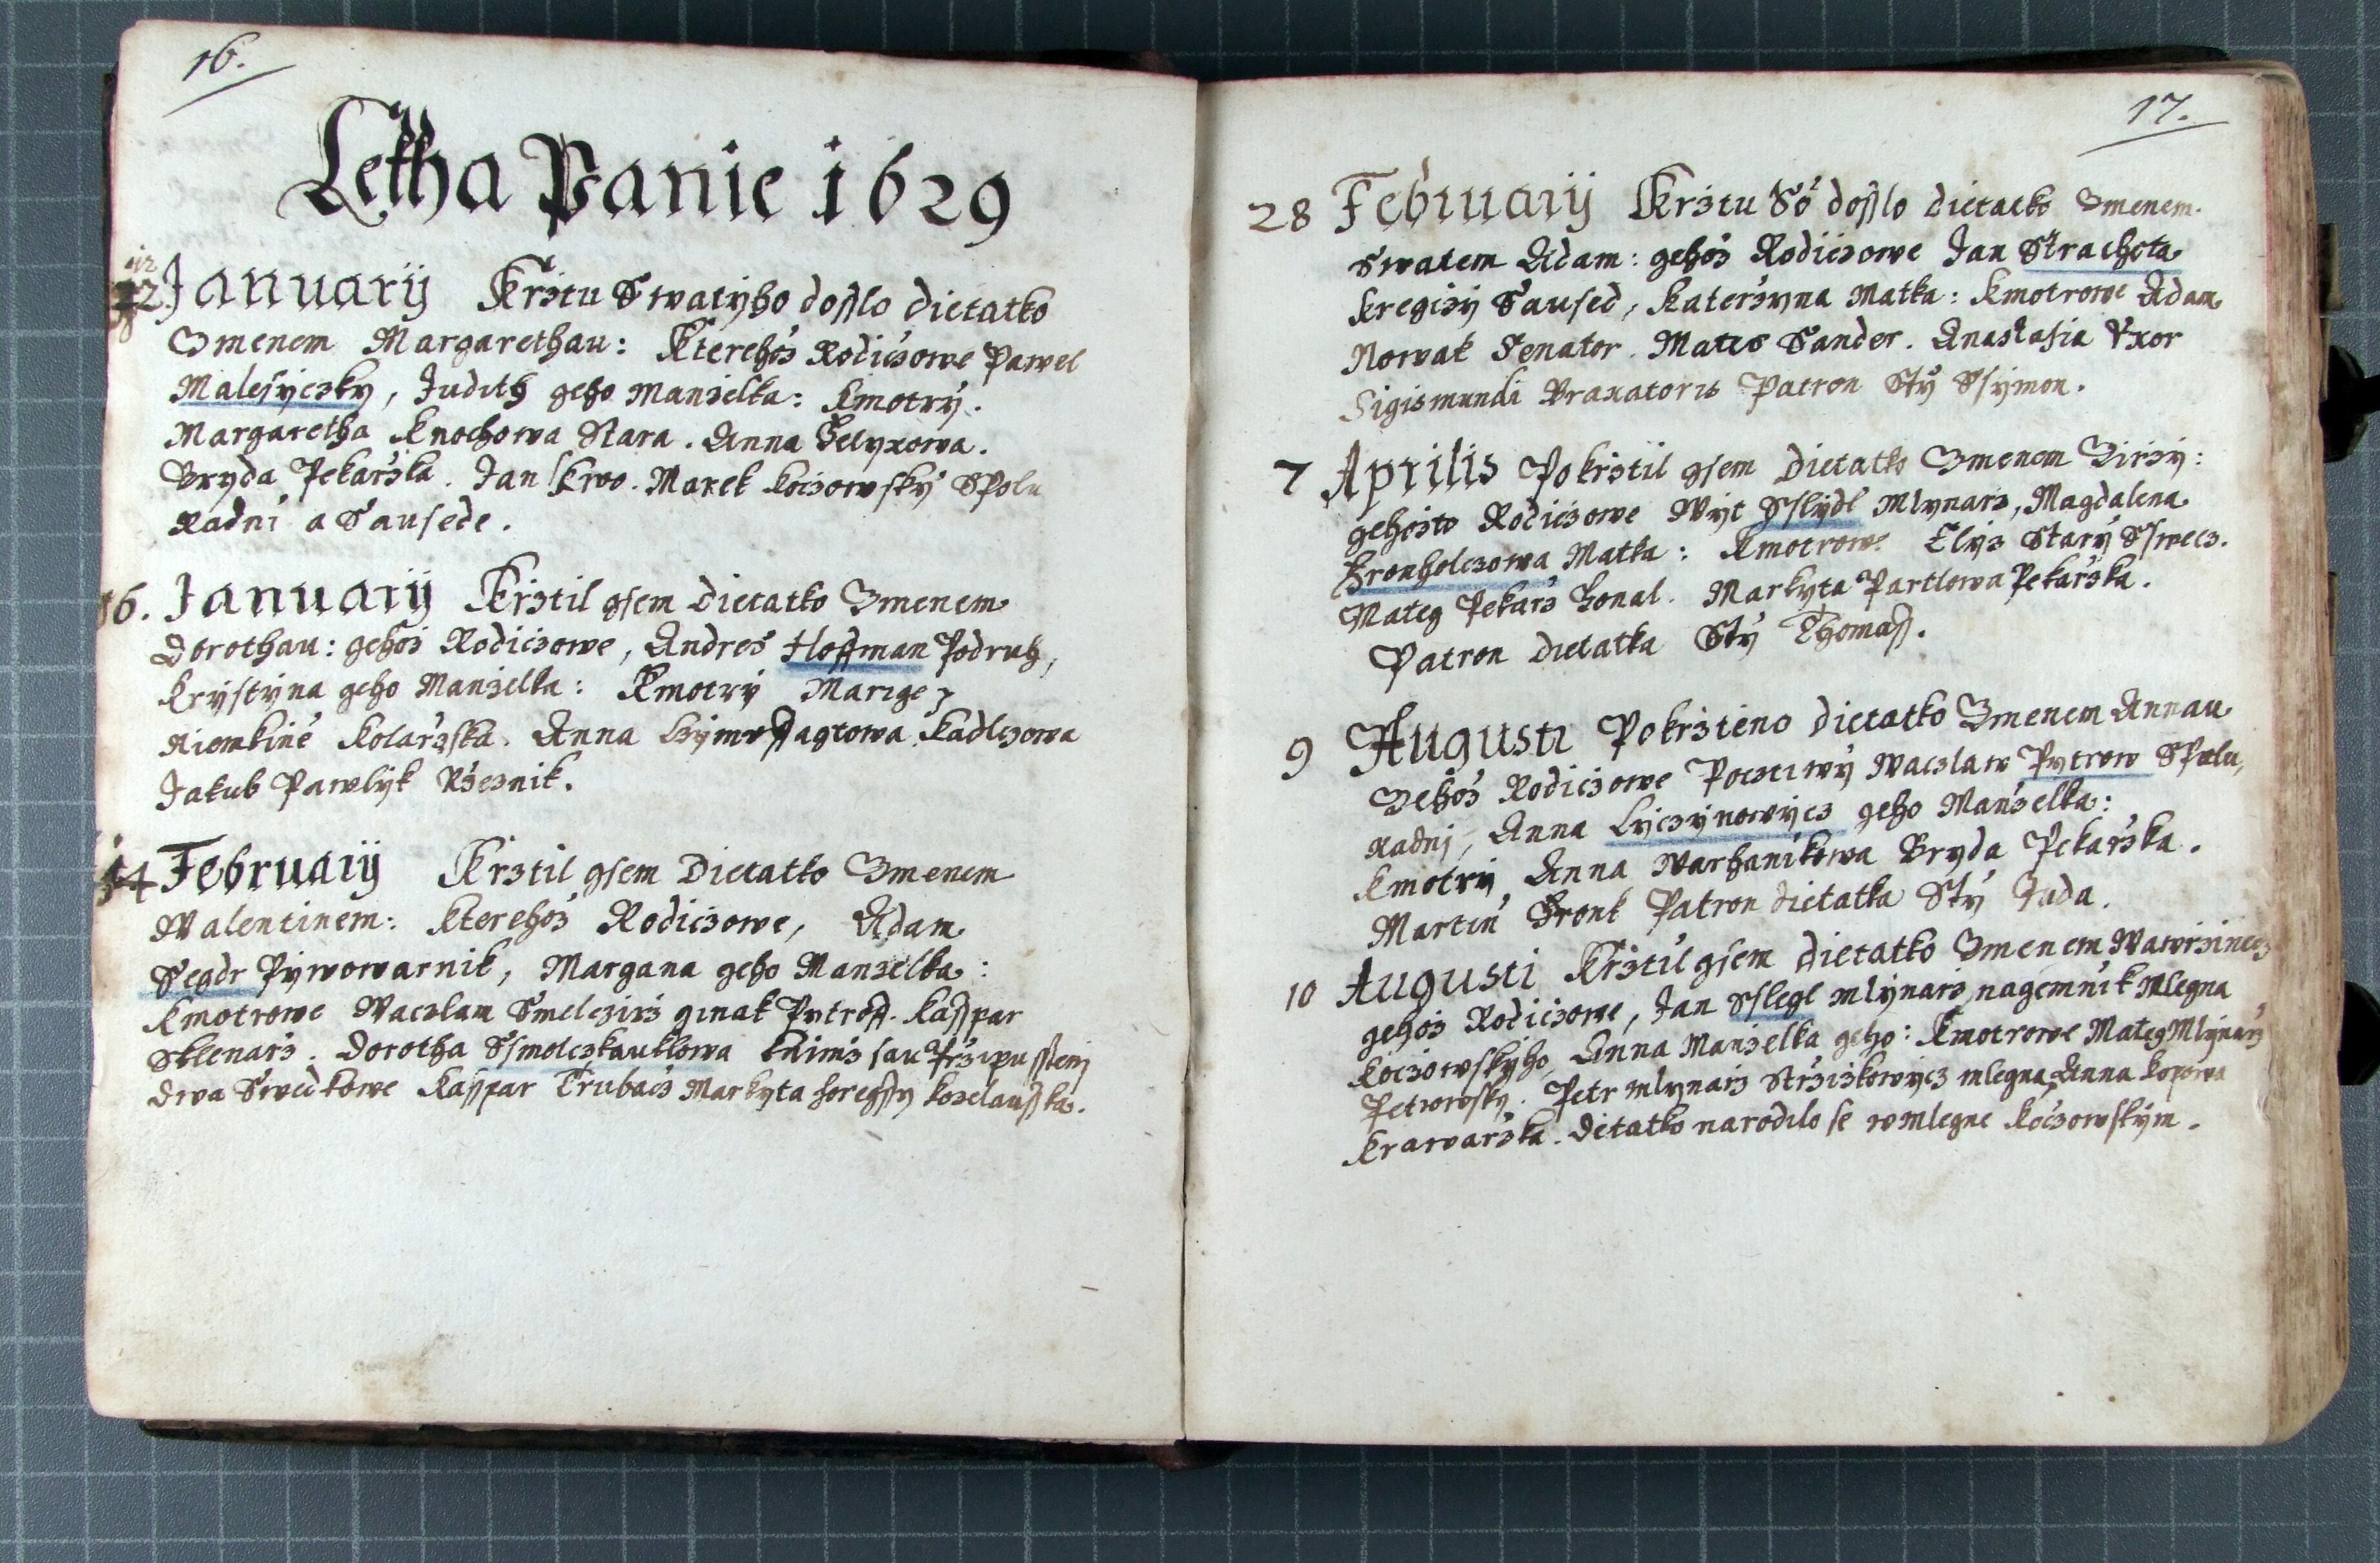 16.
Letha Panie 1629
12 Januarÿ Krztu Swatyho dosslo dietatko
Gmenem Margarethau: Kterehož Rodiczowe Pawel
Malesyczky, Judith geho Manzelka: Kmotrÿ.
Margaretha Knochowa Stara. Anna
Bryda Pekarzka. Jan Marek Koczowskÿ Spolu
Radní a Sausede.
16. Januarÿ Krztil gsem dietatko Gmenem
Dorothau: gehož Rodiczowe, Andres Hoffman Podruh,
Krystÿna geho Manzelka: Kmotrÿ
Kolarzska. Anna Kadlczowa
Jakub Pawlÿk Rzeznik.
14 Februarÿ Krztil gsem Dietatko Gmenem
Walentinem: Kterehož Rodiczowe, Adam
Segdr Pÿwowarnik, Margana geho Manzelka:
Kmotrowe Waczlaw ginak Kasspar
Sklenarz. Dorotha sau
dwa Swedkowe Kasspar Trubacz Markyta
17.
28 Februarÿ Krztu So dosslo dietatko Gmenem
Swatem Adam: gehož Rodiczowe Jan Strachota
Kregczÿ Saused, Katerzyna Matka: Kmotrowe Adam
Nowak Senator. Sander. Anastasia Vxor
Sigismundi Braxatoris Patron Stÿ Ssÿmon.
7 Aprilis Pokrztil gsem Dietatko Gmenem Girzÿ:
gehožto Rodiczowe Wÿt Sslÿdl Mlynarz, Magdalena
Gronholczowa Matka: Kmotrowe Elyz Starÿ Sswecz.
Mateg Pekarz Markyta Partlowa Pekarzka.
Patron dietatka Stÿ Thomass.
9 Augusti Pokrztieno dietatko Gmenem Annau
Gehož Rodiczowe Pocztiwÿ Waczlaw Pytrow Spolu,
Radnj, Anna Lyczÿnowÿcz geho Manželka:
Kmotrÿ Anna Warhanikowa Bryda Pekarzka.
Martin Gronk Patron dietatka Stÿ Juda.
10 Augusti Krztil gsem dietatko Gmenem Wawrzincz
gehož Rodiczowe, Jan Sslegl mlynarz nagemnik Mlegna
Koczowskÿho Anna Manzelka geho: Kmotrowe Mateg Mlÿnarz
Petrowsky. Petr mlynarz Strziskowÿcz mlegna Anna
Krawarzka. Dietatko narodilo se w mlegne Koczowskÿm.